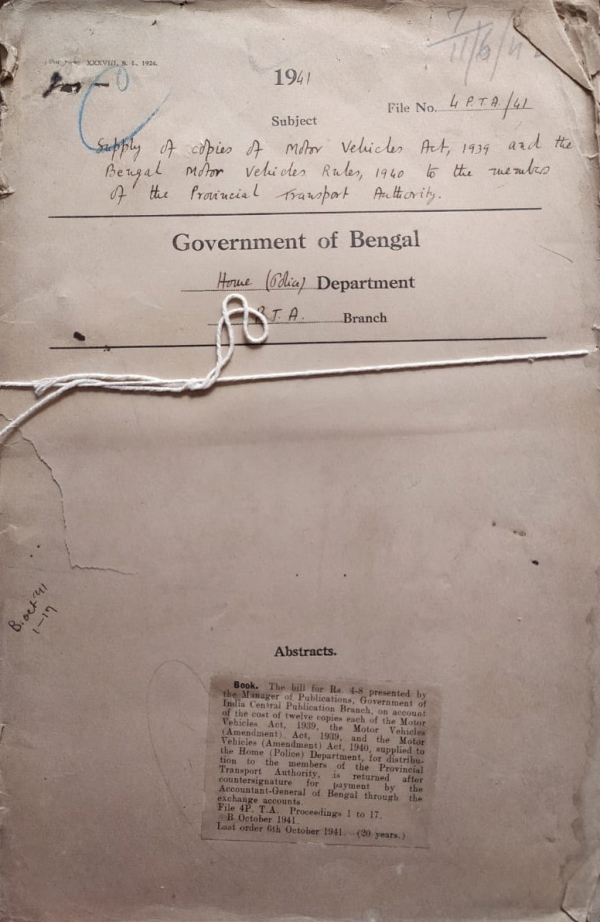 XXXVIII, S. I., 1926.
7
11/6/4
1941
File No. 4 P.T.A/41
Subject
Supply of copies of Motor Vehicles Act, 1939 and the
Bengal Motor Vehicles Rules, 1940 to the members
of the Provincial Transport Authority.
Government of Bengal
Home (Police) Department
P.T.A. Branch
B. Oct '41
1–17
Abstracts.
Book. The bill for Rs. 4-8 presented by
the Manager of Publications, Government of
India Central Publication Branch, on account
of the cost of twelve copies each of the Motor
Vehicles Act, 1939, the Motor Vehicles
(Amendment) Act, 1939, and the Motor
Vehicles (Amendment) Act, 1940, supplied to
the Home (Police) Department, for distribu-
tion to the members of the Provincial
Transport Authority, is returned after
countersignature for payment by the
Accountant-General of Bengal through the
exchange accounts.
File 4P. T. A. Proceedings 1 to 17.
B October 1941.
Last order 6th October 1941. (20 years.)